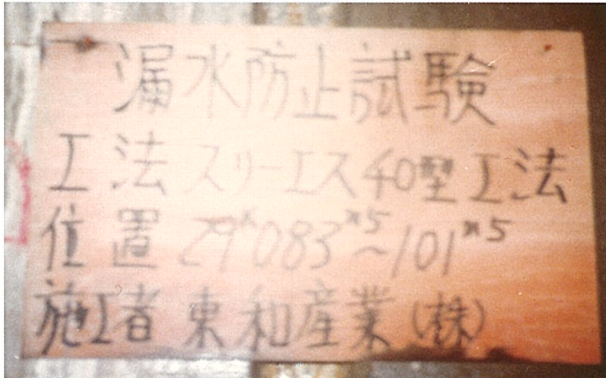 漏水防止試験
工法 スリーエス40型工法
位置 29ᵏ083ᵐ5~101ᵐ5
施工者 東和産業(株)